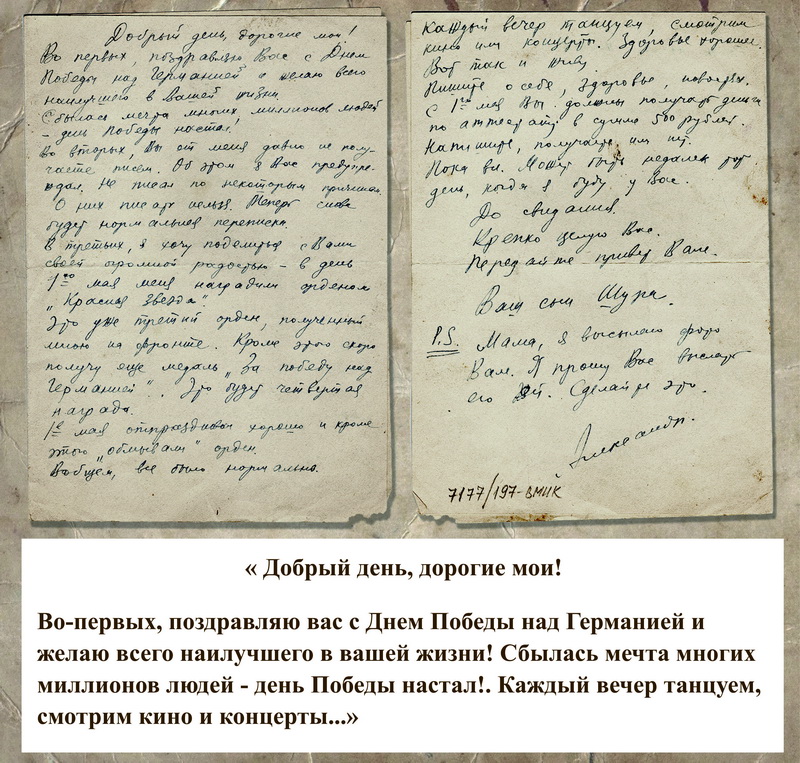 Добрый день, дорогие мои!
Во первых, поздравляю Вас с Днем
Победы над Германией и желаю всего
наилучшего в Вашей жизни.
Сбылась мечта многих миллионов людей
- день Победы настал!
Во вторых, Вы от меня давно не полу-
чаете писем. Об этом я Вас предупре-
ждал. Не писал по некоторым причинам.
О них писать нельзя. Теперь снова
будет нормальная переписка.
В третьих, я хочу поделиться с Вами
своей огромной радостью - в день
1го мая меня наградили орденом
"Красная Звезда".
Это уже третий орден, полученный
мною на фронте. Кроме этого скоро
получу еще медаль "За победу над
Германией". Это будет четвертая
награда.
1е мая отпраздновал хорошо и кроме
этого "обмывали" орден.
Вообщем, все было нормально.
Каждый вечер танцуем, смотрим
кино или концерты. Здоровье хорошее.
Вот так и живу.
Пишите о себе, здоровье, новостях.
С 1го мая Вы должны получать деньги
по аттестату в сумме 500 рублей.
Напишите, получаете или нет.
Пока все. Может быть недалек тот
день, когда я буду у Вас.
До свидания.
Крепко целую Вас.
Передайте привет Вале.
Ваш сын Шура.
P.S. Мама, я высылаю фото
Вам. Я прошу Вас выслать
его ей. Сделайте это.
Александр.
7177/197-ВМИК
« Добрый день, дорогие мои!
Во-первых, поздравляю вас с Днем Победы над Германией и
желаю всего наилучшего в вашей жизни! Сбылась мечта многих
миллионов людей - день Победы настал!. Каждый вечер танцуем,
смотрим кино и концерты...»